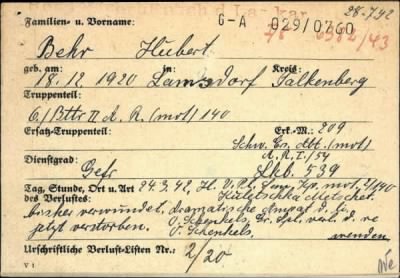 28.7.42
Familien- u. Vorname: G-A 029/0760
Behr Hubert
geb. am: in: Kreis:
18.12.1920 Lamsdorf Falkenberg
Truppenteil:
6/Bttr II A. R. (mot) 140
Ersatz-Truppenteil: Erk.-M.: 209
Schw. Ers. Abt. (mot)
A.R.I/54
Dienstgrad: Lkb. 539
Gefr
Tag, Stunde, Ort u. Art 24.3.42, H. V. Pl. San. Kp. mot. 2/140
des Verlustes:
bisher verwundet,
jetzt verstorben. O. Schenkels,
O. Schenkels wenden
Urschriftliche Verlust-Listen Nr.: 2/20
V 1